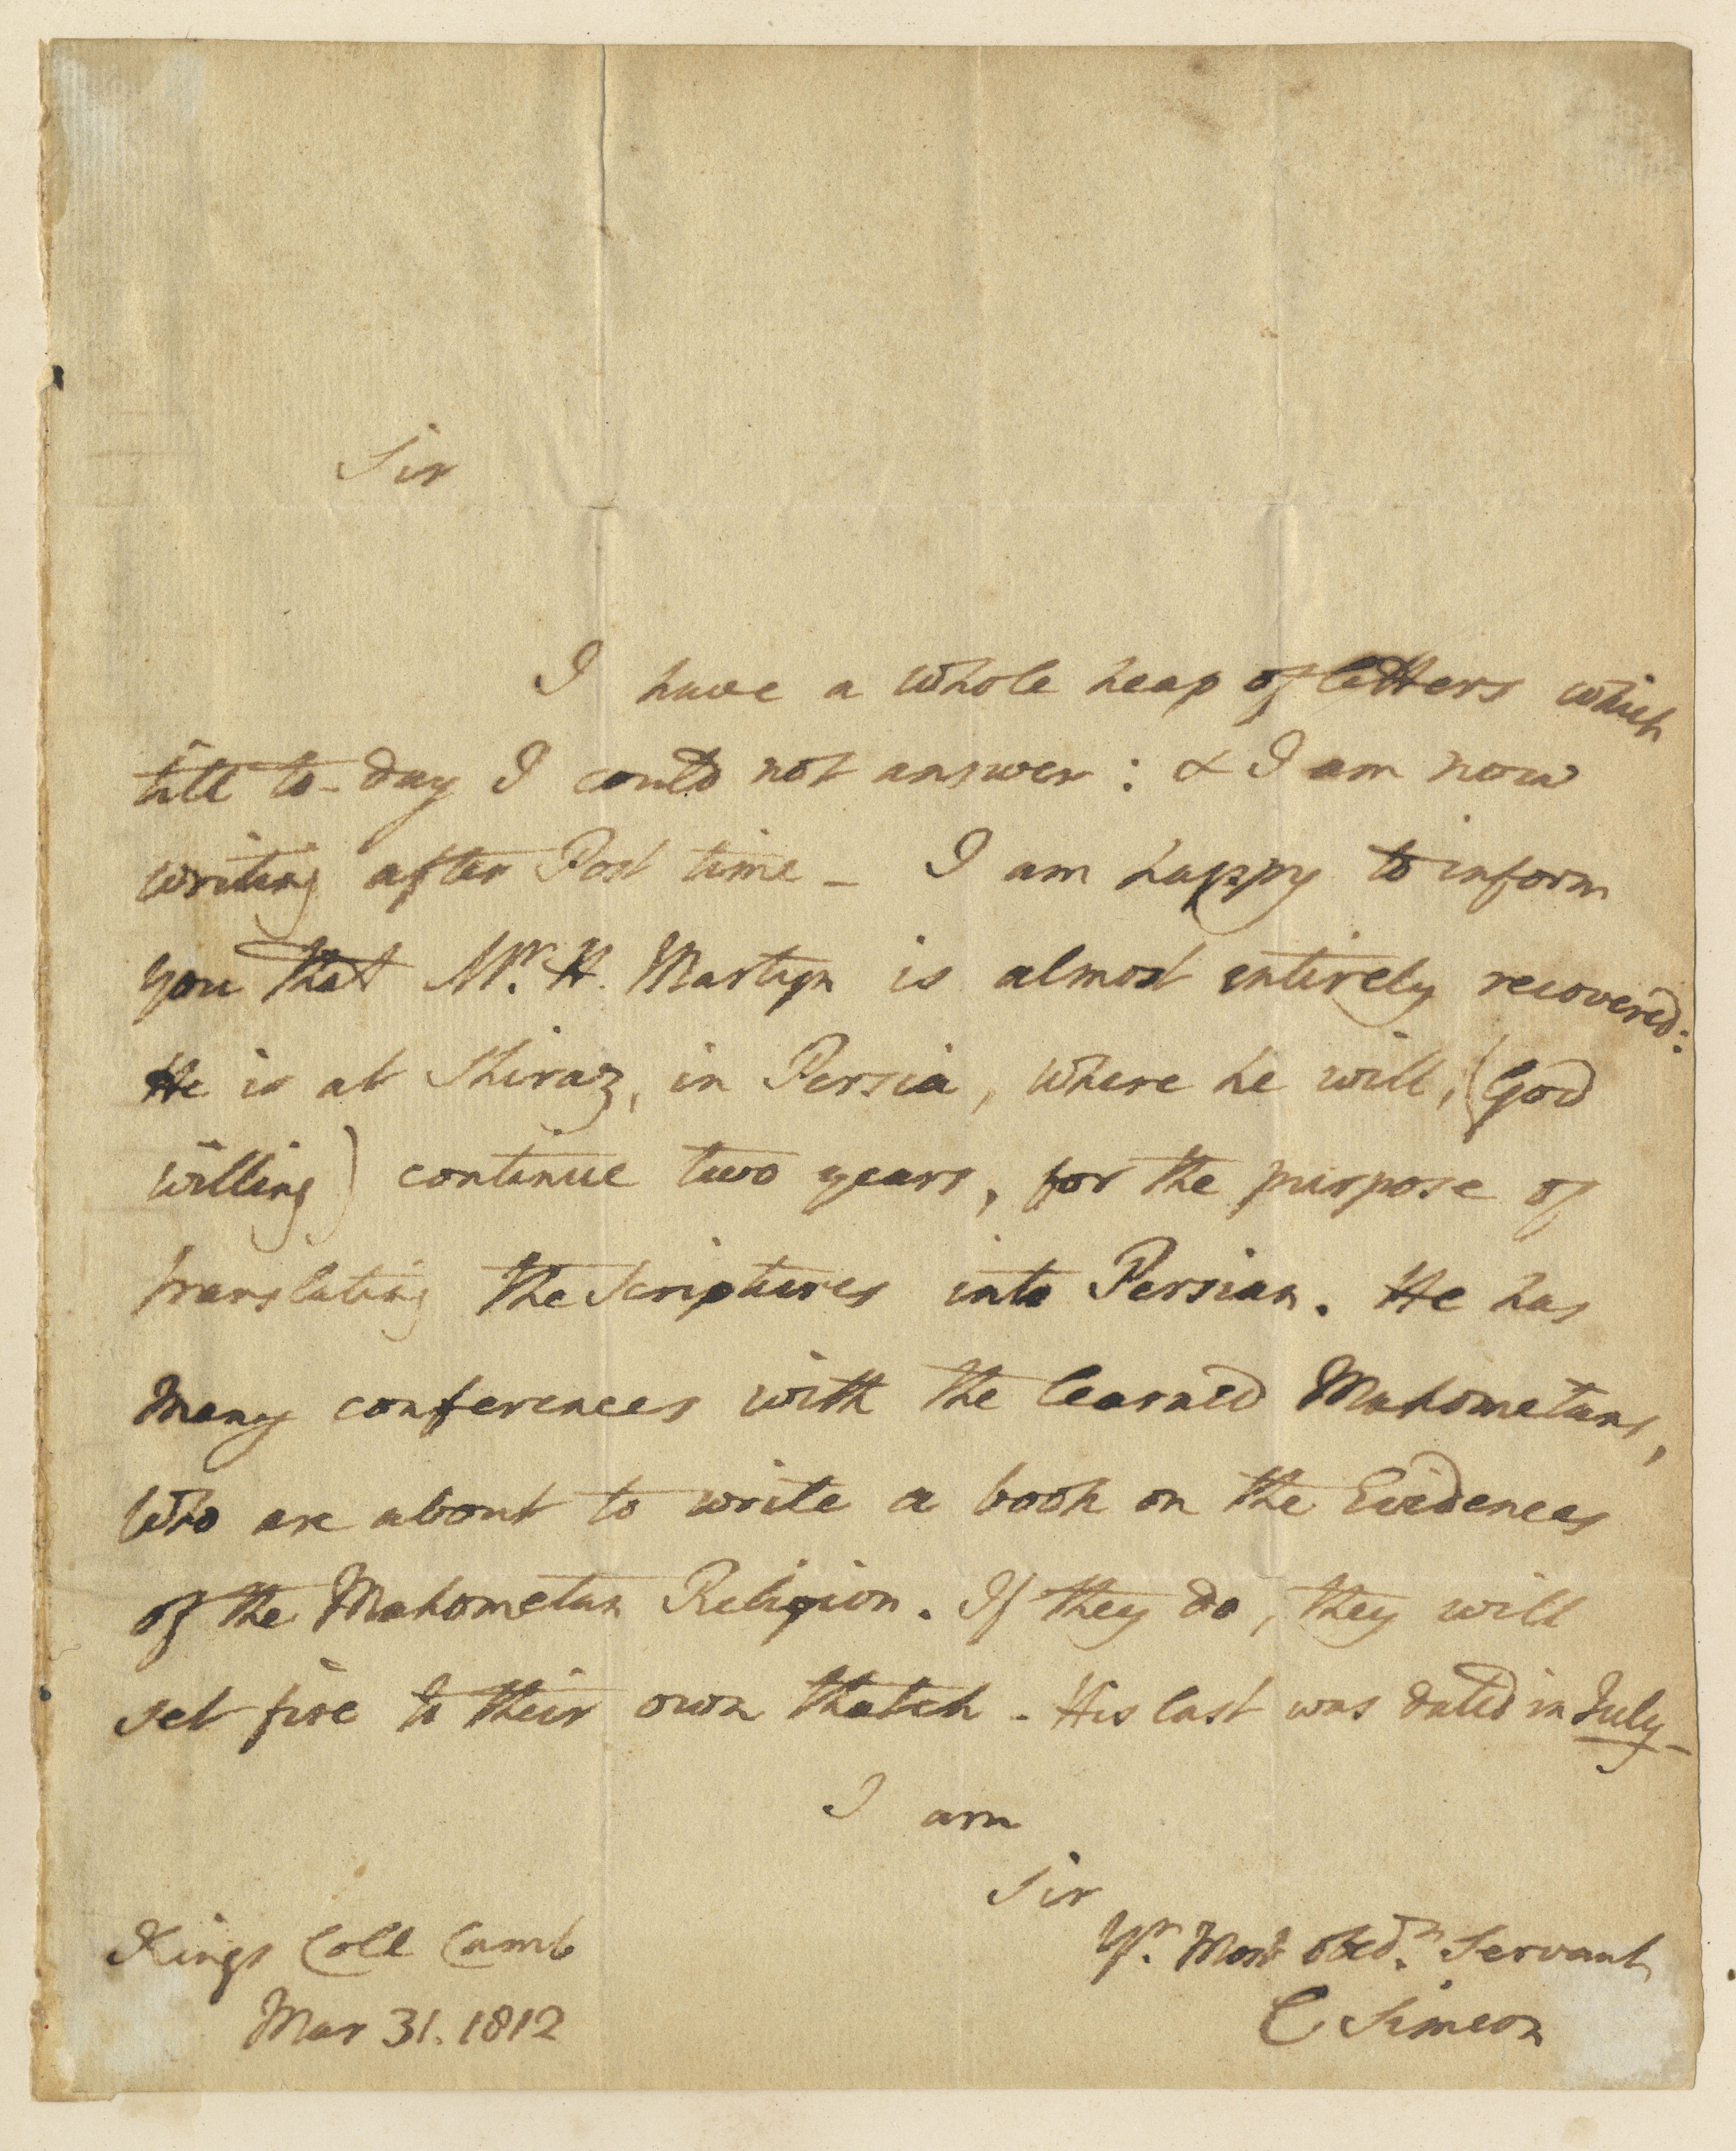 Sir
I have a whole heap of letters which
till to-day I could not answer: & I am now
writing after Post time - I am happy to inform
you that Mr. H. Martyn is almost entirely recovered:
He is at Shiraz, in Persia, where he will, (God
willing) continue two years, for the purpose of
translating the Scriptures into Persian. He has
many conferences with the learned Mahometans,
who are about to write a book on the Evidences
of the Mahometan Religion. If they do, they will
set fire to their own thatch. His last was dated in July-
I am
Sir
Yr. Most obedt. Servant
C Simeon
Kings Coll Camb
Mar 31. 1812